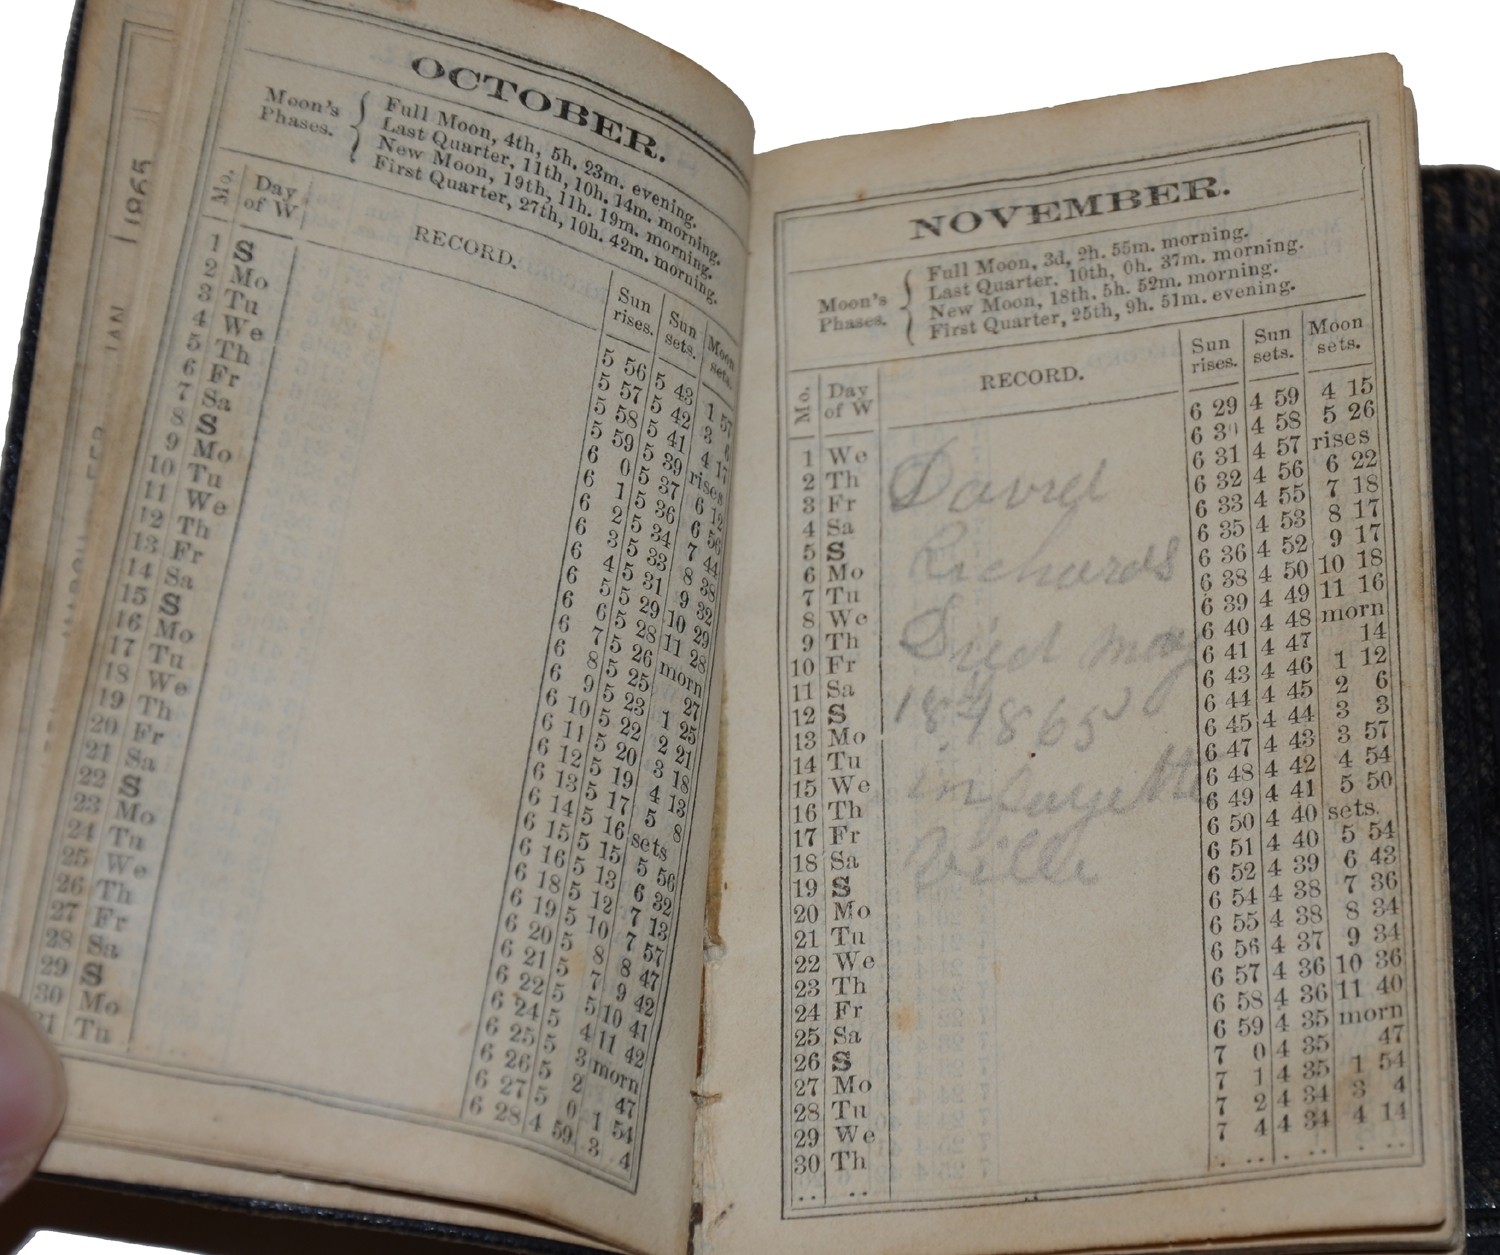 1865
JAN
OCTOBER.
Moon's Phases.
Full Moon, 4th, 5h. 23m. evening.
Last Quarter, 11th, 10h. 14m. morning.
New Moon, 19th, 11h. 19m. morning.
First Quarter, 27th, 10h. 42m. morning.
Mo. Day of W RECORD. Sun rises. Sun sets. Moon sets.
1 S 5 56 5 43 1 57
2 Mo 5 57 5 42 3 6
3 Tu 5 58 5 41 4 17
4 We 5 59 5 39 rises
5 Th 6 0 5 37 6 12
6 Fr 6 1 5 36 6 56
7 Sa 6 2 5 34 7 44
8 S 6 3 5 33 8 38
9 Mo 6 4 5 31 9 32
10 Tu 6 5 5 29 10 29
11 We 6 6 5 28 11 28
12 Th 6 7 5 26 morn
13 Fr 6 8 5 25 27
14 Sa 6 9 5 23 1 25
15 S 6 10 5 22 2 21
16 Mo 6 11 5 20 3 18
17 Tu 6 12 5 19 4 13
18 We 6 13 5 17 5 8
19 Th 6 14 5 16 sets
20 Fr 6 15 5 15 5 56
21 Sa 6 16 5 13 6 32
22 S 6 18 5 12 7 13
23 Mo 6 19 5 10 7 57
24 Tu 6 20 5 8 8 47
25 We 6 21 5 7 9 42
26 Th 6 22 5 5 10 41
27 Fr 6 24 5 4 11 42
28 Sa 6 25 5 3 morn
29 S 6 26 5 2 47
30 Mo 6 27 5 0 1 54
31 Tu 6 28 4 59 3 4
NOVEMBER.
Moon's Phases.
Full Moon, 3d, 2h. 55m. morning.
Last Quarter. 10th, 0h. 37m. morning.
New Moon, 18th. 5h. 52m. morning.
First Quarter, 25th, 9h. 51m. evening.
Mo. Day of W RECORD. Sun rises. Sun sets. Moon sets.
1 We 6 29 4 59 4 15
2 Th 6 30 4 58 5 26
3 Fr 6 31 4 57 rises
4 Sa 6 32 4 56 6 22
5 S 6 33 4 55 7 18
6 Mo 6 35 4 53 8 17
7 Tu 6 36 4 52 9 17
8 We 6 38 4 50 10 18
9 Th 6 39 4 49 11 16
10 Fr 6 40 4 48 morn
11 Sa 6 41 4 47 14
12 S 6 43 4 46 1 12
13 Mo 6 44 4 45 2 6
14 Tu 6 45 4 44 3 3
15 We 6 47 4 43 3 57
16 Th 6 48 4 42 4 54
17 Fr 6 49 4 41 5 50
18 Sa 6 50 4 40 sets.
19 S 6 51 4 40 5 54
20 Mo 6 52 4 39 6 43
21 Tu 6 54 4 38 7 36
22 We 6 55 4 38 8 34
23 Th 6 56 4 37 9 34
24 Fr 6 57 4 36 10 36
25 Sa 6 58 4 36 11 40
26 S 6 59 4 35 morn
27 Mo 7 0 4 35 47
28 Tu 7 1 4 35 1 54
29 We 7 2 4 34 3 4
30 Th 7 4 4 34 4 14
David
Richards
Died may
18th 1865
in fayette
Ville